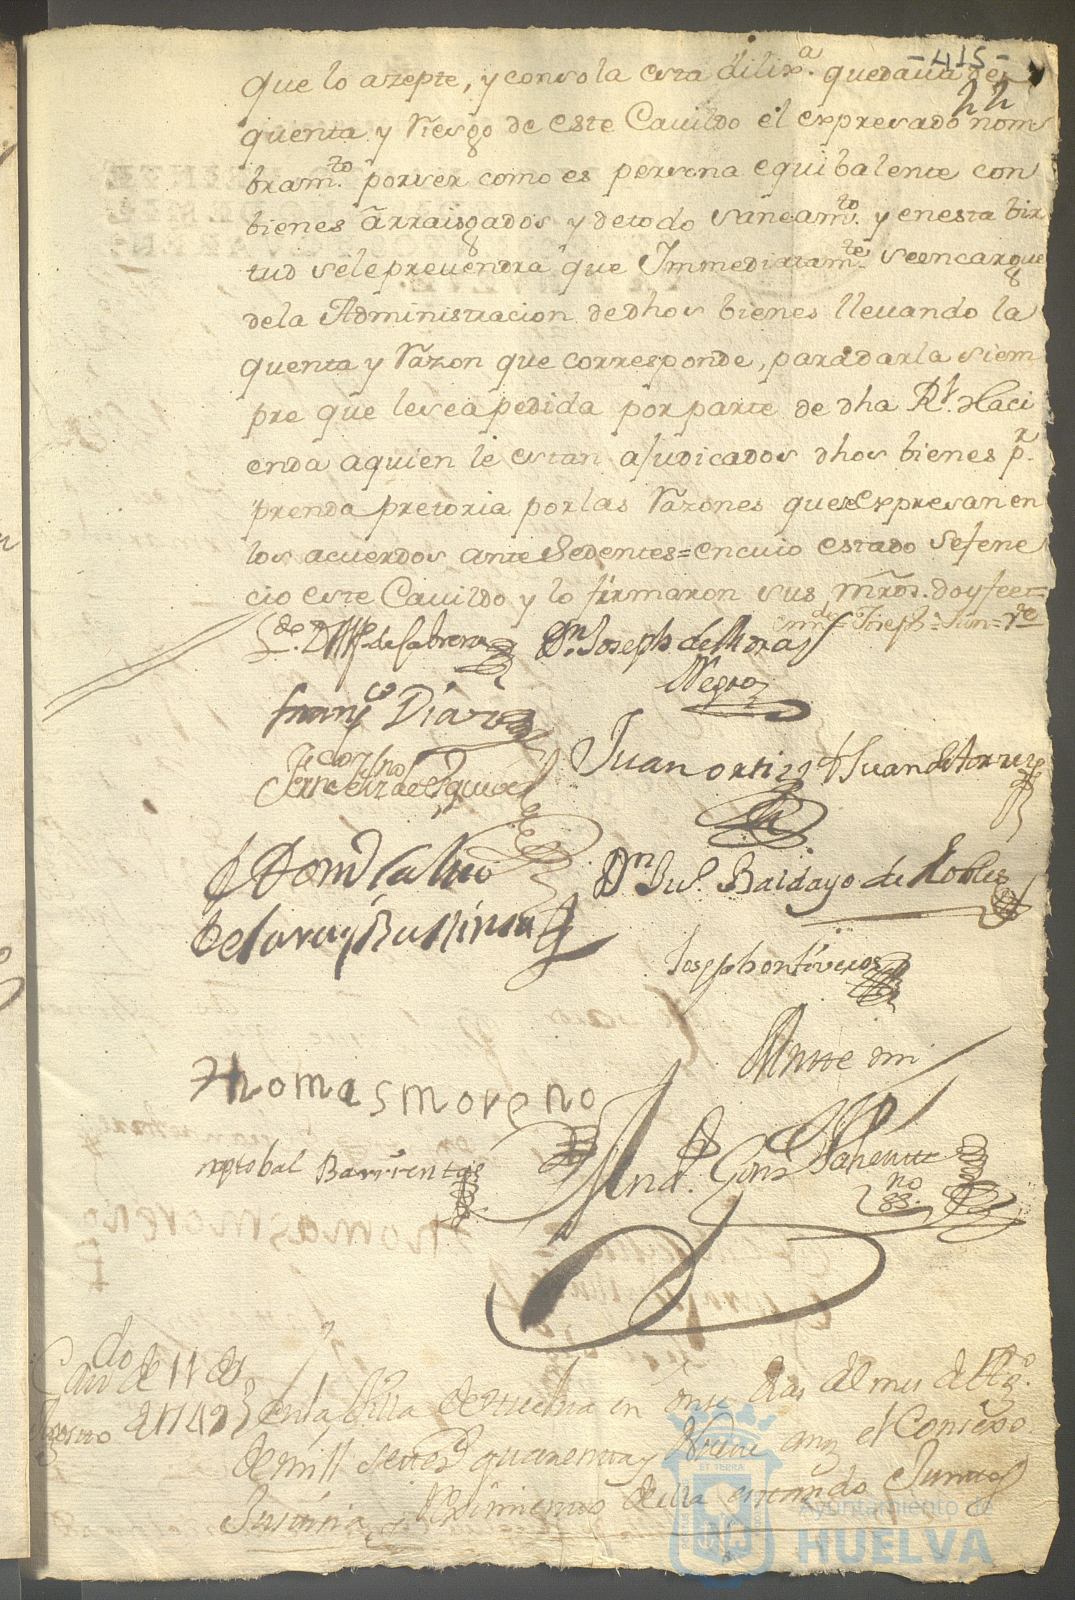 -415-
22
que lo azepte, y con sola esta dilix.ª quedaua de
quenta y Riesgo de este Cauildo el expresado nom
bram.to por ser como es persona equibalente con
bienes arraisgados y de todo saneam.to y en esta bir
tud se le preuendra que Immediatam.te se encargue
de la Administracion de dhos bienes lleuando la
quenta y Razon que corresponde, para darla siem
pre que le sea pedida por parte de dha Rl. Haci
enda a quien le estan ajudicados dhos bienes p.r
prenda pretoria por las Razones que se expresan en
los acuerdos ante Sedentes = en cuio estado se fene
cio este Cauildo y lo firmaron sus mrds. doy fee =
de Cabrera Dn. Joseph de Mora
Negro
Fran.co Diaz
Juan ortiz Juan de
Dn. Baldayo de Robles
Joseph ontiveros
Thomas moreno
Ante mi
xptobal Barrientos
Cau.do de 11 de
Agosto de 1749
En la Villa de Huelua en onse dias del mes de Ag.o
de mill settes. quarenta y Nueue años el Consexo
Justicia, y Reximiento de ella estando Juntos
Ayuntamiento de
HUELVA